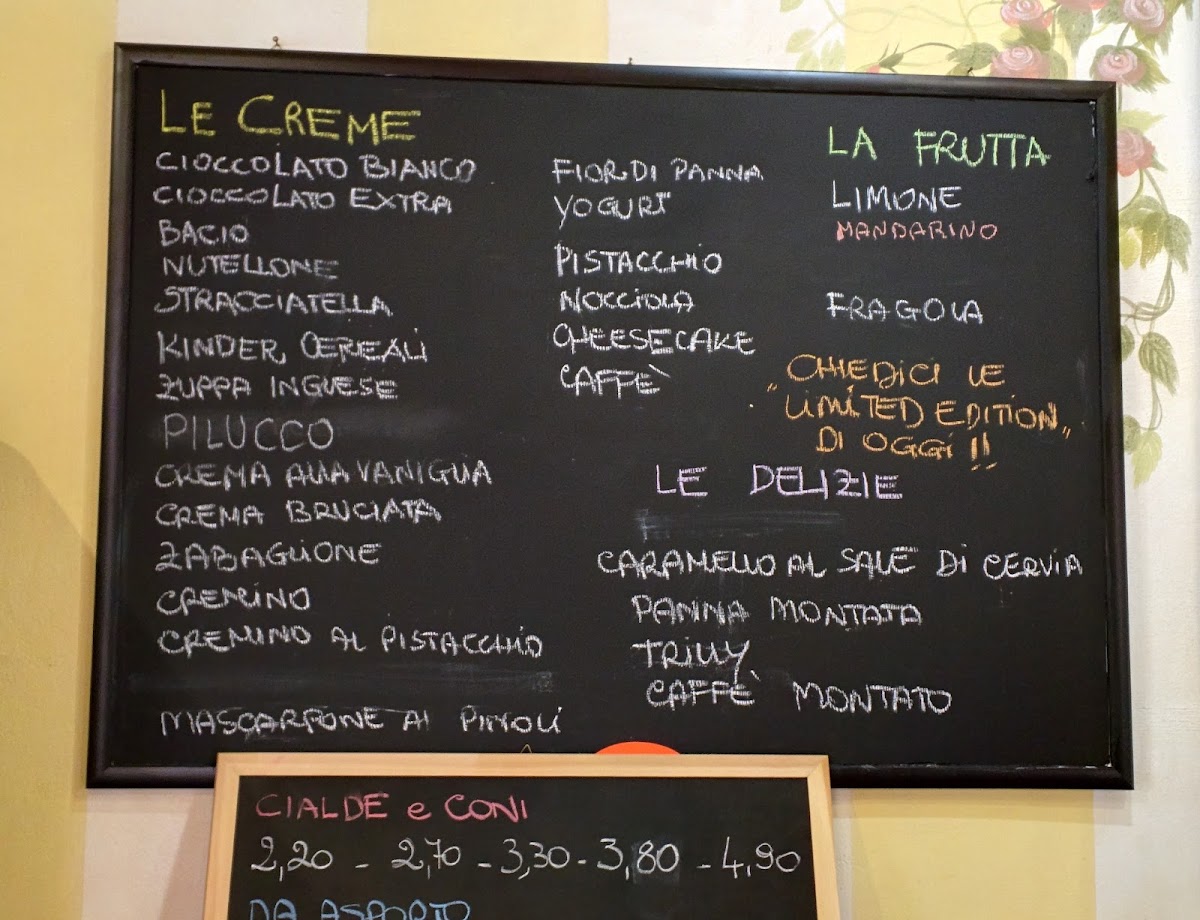 LE CREME
CIOCCOLATO BIANCO
CIOCCOLATO EXTRA
BACIO
NUTELLONE
STRACCIATELLA
KINDER CEREALI
ZUPPA INGLESE
PILUCCO
CREMA ALLA VANIGLIA
CREMA BRUCIATA
ZABAGLIONE
CREMINO
CREMINO AL PISTACCHIO
MASCARPONE AI PINOLI
FIOR DI PANNA
YOGURT
PISTACCHIO
NOCCIOLA
CHEESECAKE
CAFFÈ
LA FRUTTA
LIMONE
MANDARINO
FRAGOLA
CHIEDICI LE
"LIMITED EDITION"
DI OGGI !!
LE DELIZIE
CARAMELLO AL SALE DI CERVIA
PANNA MONTATA
TRILLY
CAFFÈ MONTATO
CIALDE e CONI
2,20 - 2,70 - 3,30 - 3,80 - 4,90
DA ASPORTO